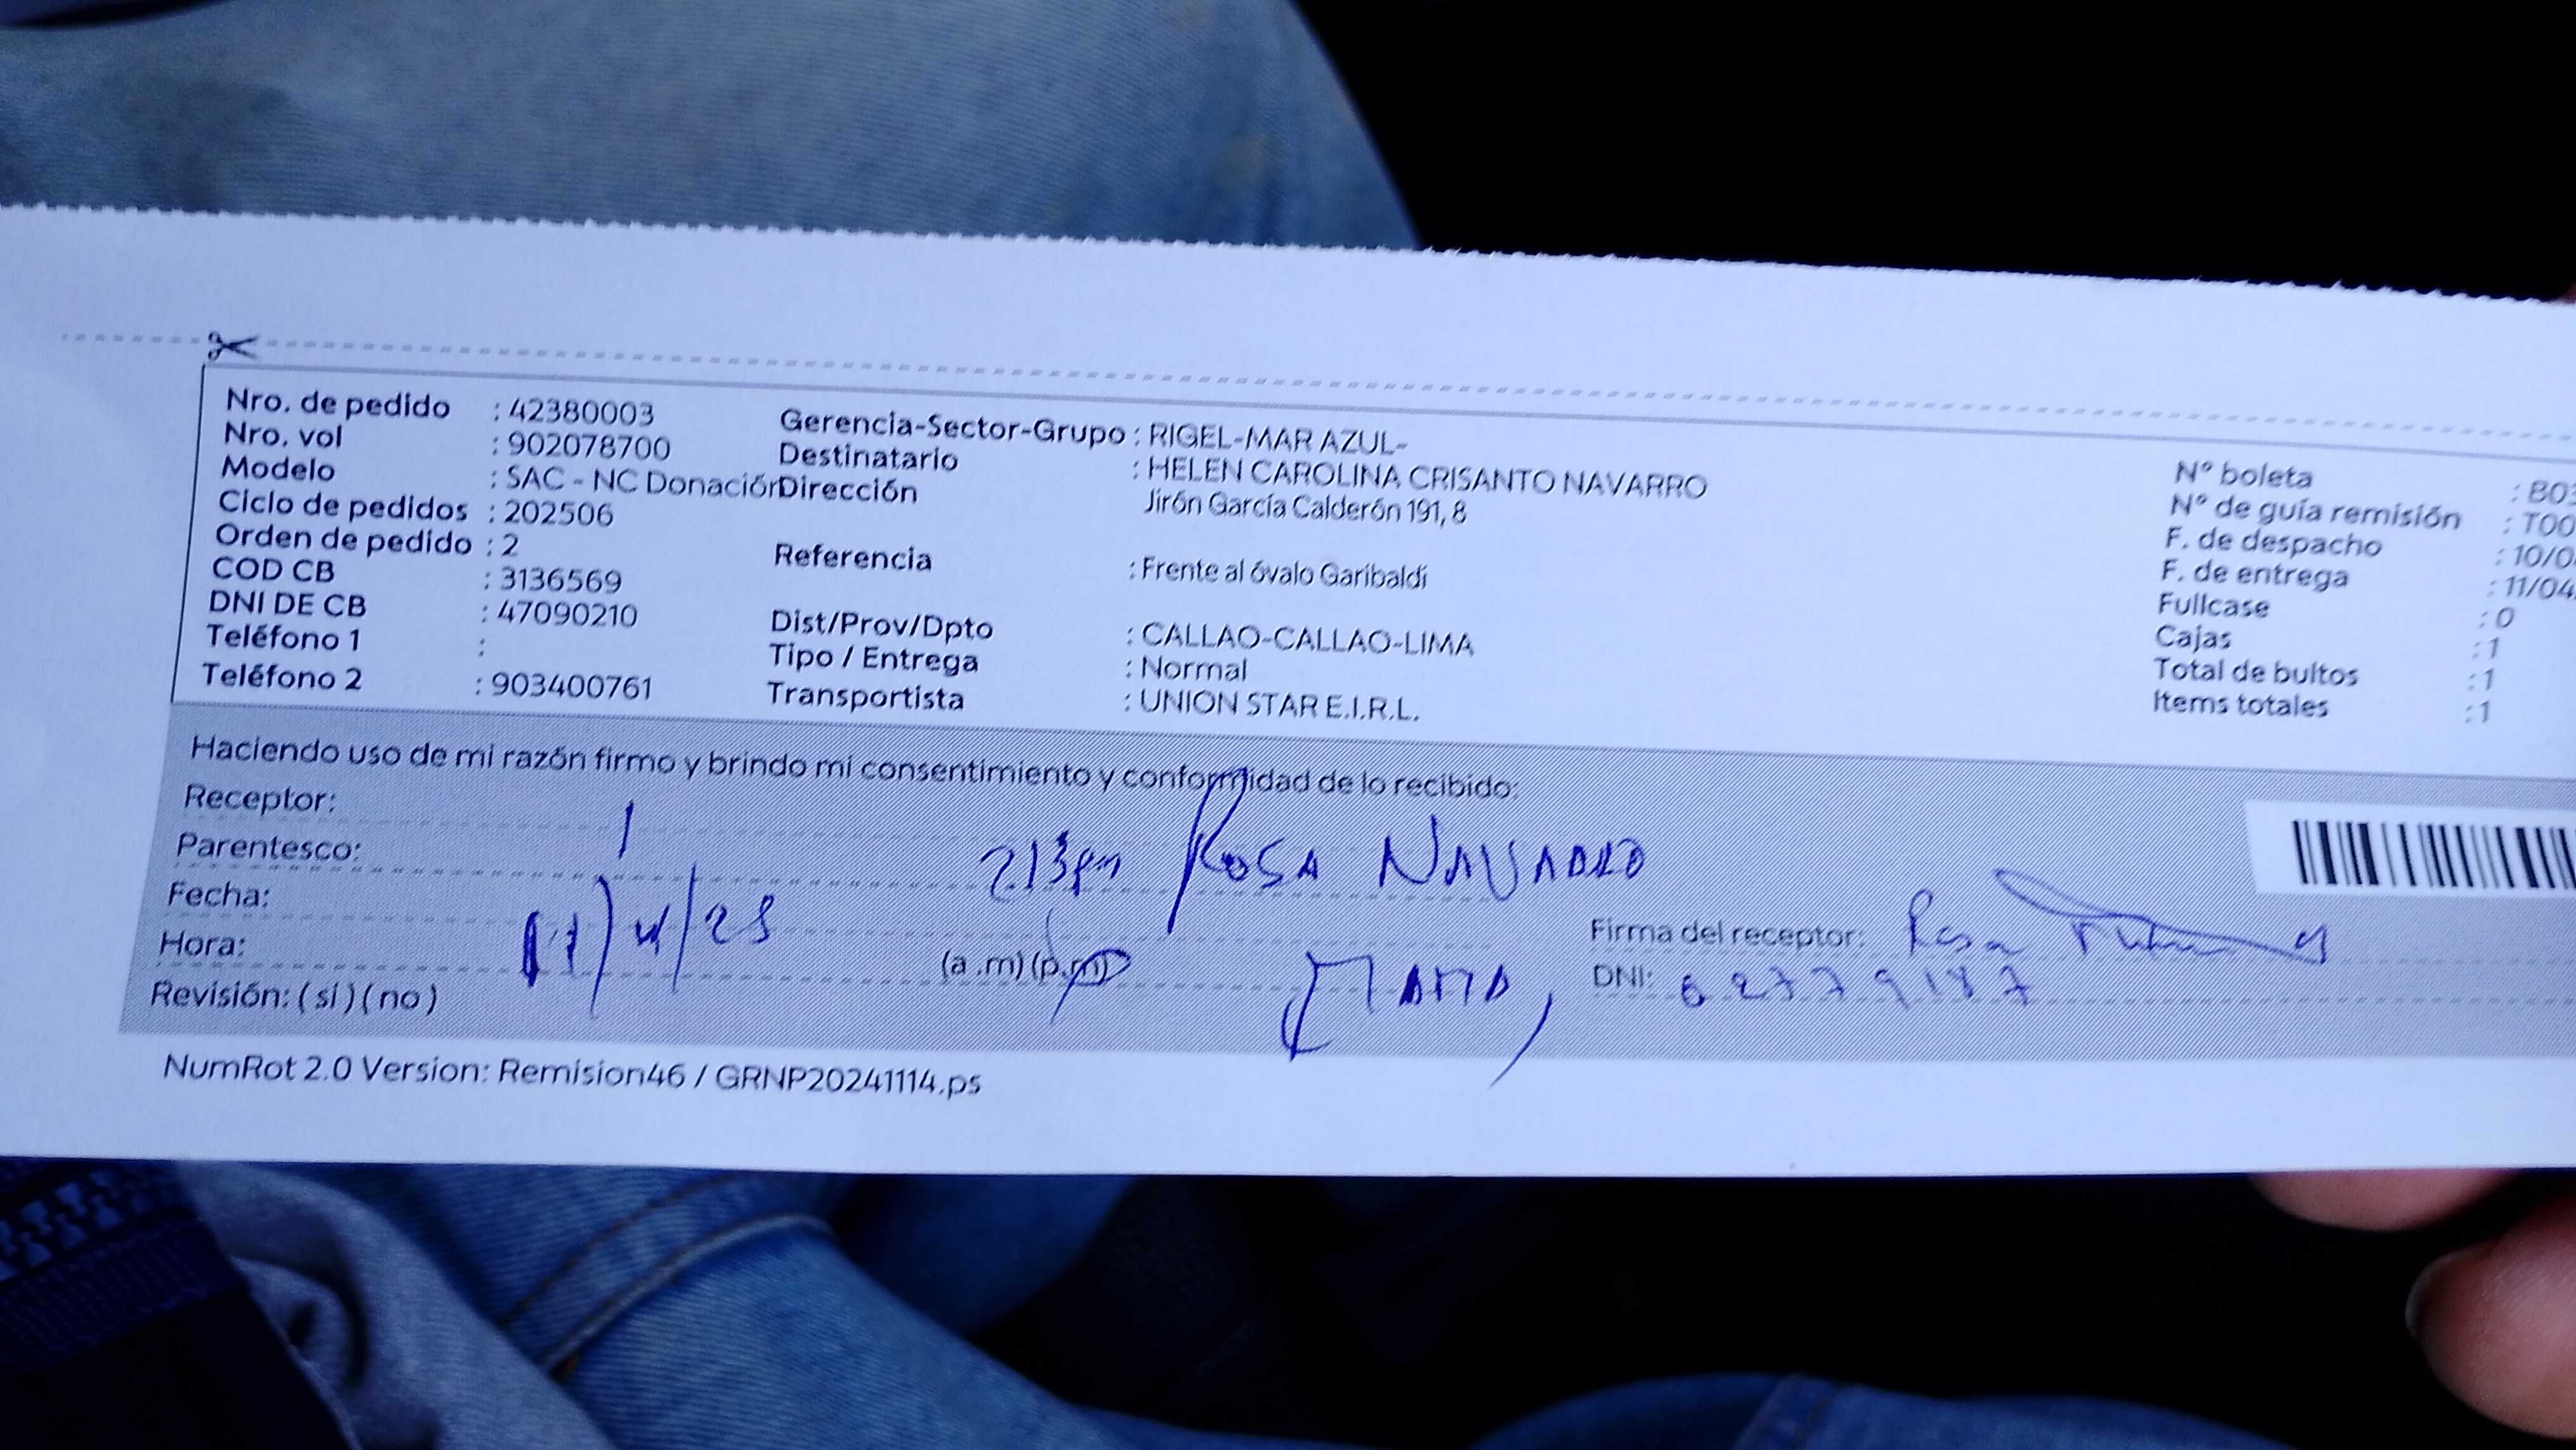 Nro. de pedido : 42380003
Nro. vol : 902078700
Modelo : SAC - NC Donación
Ciclo de pedidos : 202506
Orden de pedido : 2
COD CB : 3136569
DNI DE CB : 47090210
Teléfono 1 :
Teléfono 2 : 903400761
Gerencia-Sector-Grupo : RIGEL-MAR AZUL-
Destinatario : HELEN CAROLINA CRISANTO NAVARRO
Dirección Jirón García Calderón 191, 8
Referencia : Frente al óvalo Garibaldi
Dist/Prov/Dpto : CALLAO-CALLAO-LIMA
Tipo / Entrega : Normal
Transportista : UNION STAR E.I.R.L.
N° boleta : B03
N° de guía remisión : T00
F. de despacho : 10/0
F. de entrega : 11/04
Fullcase : 0
Cajas : 1
Total de bultos : 1
Items totales : 1
Haciendo uso de mi razón firmo y brindo mi consentimiento y conformidad de lo recibido:
Receptor:
Parentesco: 213pm ROSA NAVARRO
Fecha: 11/4/25
Hora: (a .m) (p.m)
Revisión: ( si ) ( no )
Firma del receptor: Rosa
DNI: 02779187
NumRot 2.0 Version: Remision46 / GRNP20241114.ps